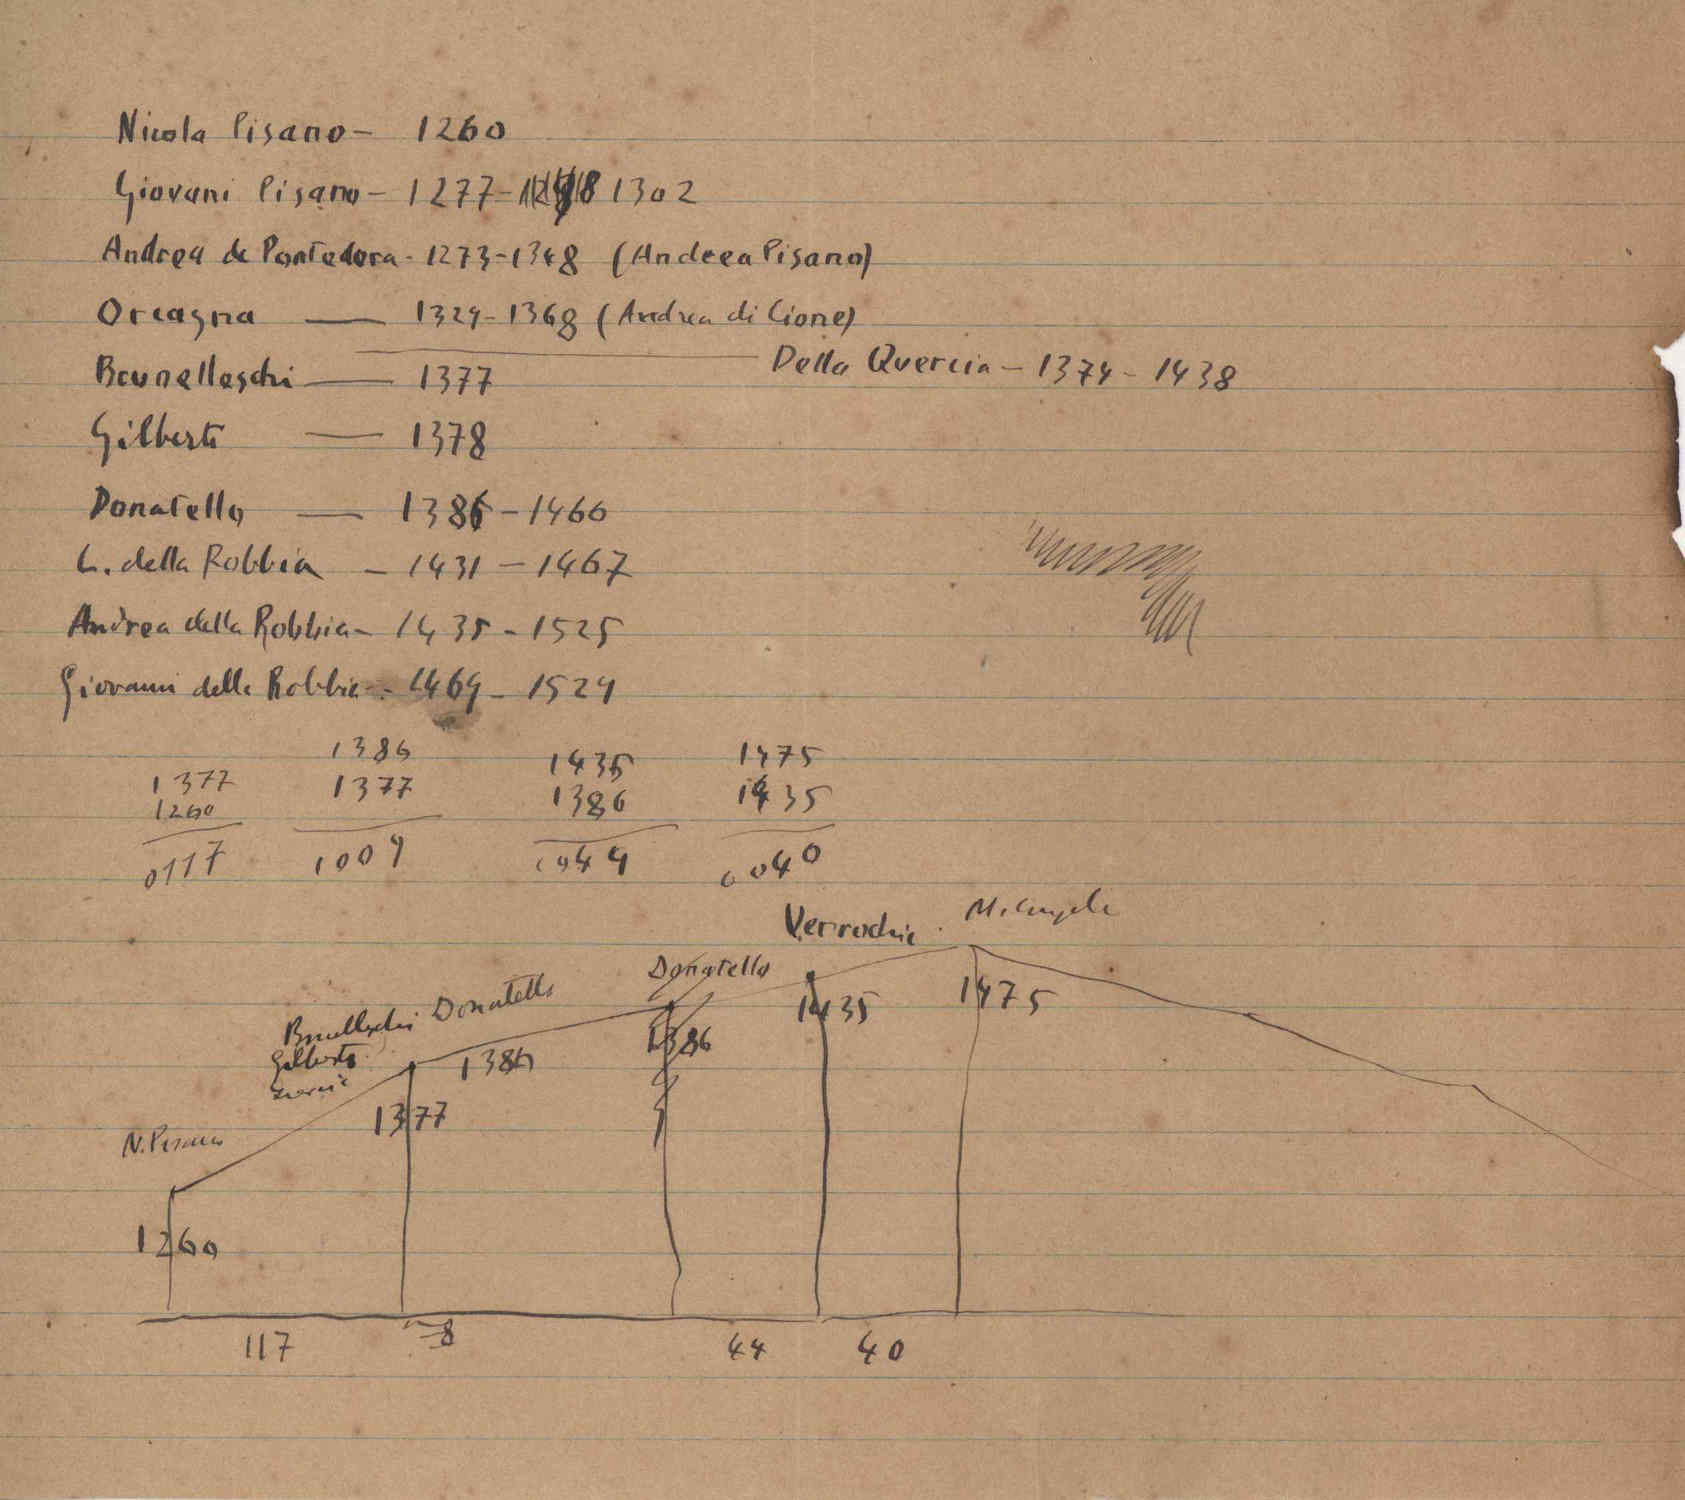 Nicola Pisano - 1260
Giovani Pisano - 1277 - 1302
Andrea de Pontedera - 1273-1348 (Andrea Pisano)
Orcagna — 1329-1368 (Andrea di Cione)
Della Quercia - 1374 - 1438
Brunelleschi — 1377
Gilberti — 1378
Donatello — 1386 - 1466
L. della Robbia - 1431 - 1467
Andrea della Robbia - 1435 - 1525
Giovanni della Robbia - 1469 - 1529
1386 1435 1475
1377 1377 1386 1435
1260
0117 1009 1049 0040
Verrochio M. Angelo
Donatello
Brunelleschi Donatello
Gilberti
1435 1475
1386 1386
1377
N. Pisano
1260
117 8 44 40